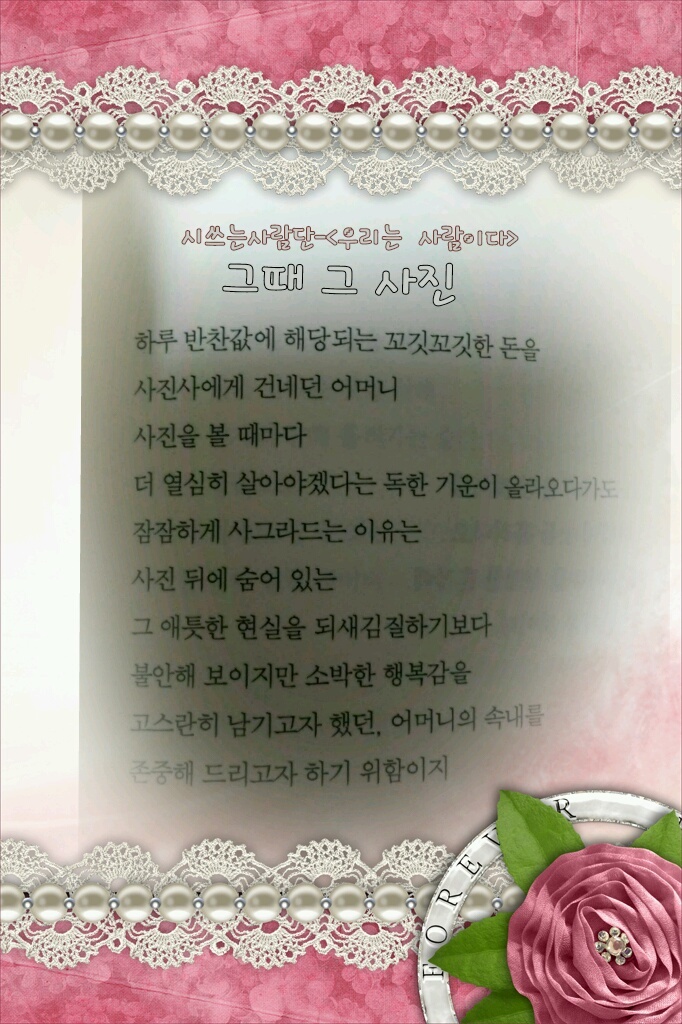 시쓰는사람단-<우리는 사람이다>
그때 그 사진
하루 반찬값에 해당되는 꼬깃꼬깃한 돈을
사진사에게 건네던 어머니
사진을 볼 때마다
더 열심히 살아야겠다는 독한 기운이 올라오다가도
잠잠하게 사그라드는 이유는
사진 뒤에 숨어 있는
그 애틋한 현실을 되새김질하기보다
불안해 보이지만 소박한 행복감을
고스란히 남기고자 했던, 어머니의 속내를
존중해 드리고자 하기 위함이지
FOREVER